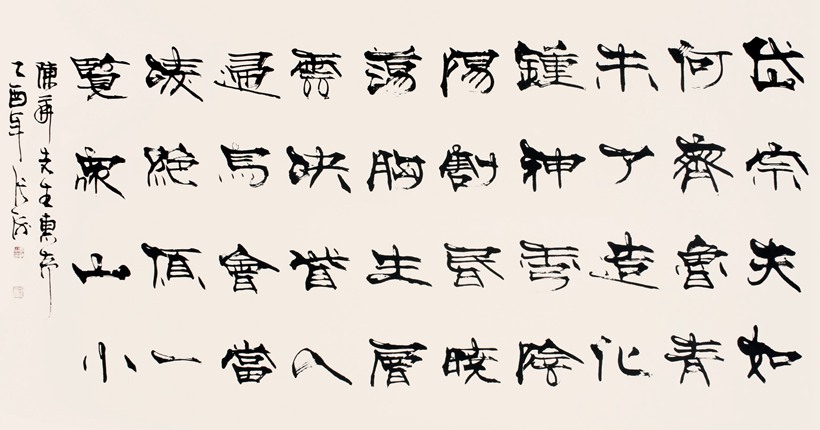 岱宗夫如
何齊魯青
未了造化
鍾神秀陰
陽割昏曉
蕩胸生層
雲決眥入
歸馬會當
凌絶頂一
覽衆山小
陳 先生惠
乙酉年 張